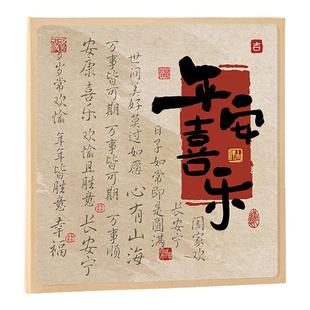 吉
年安喜乐
阖家欢
长安宁
日子如常即是圆满
世间美好莫过如愿 心有山海
万事皆可期 万事皆可期 万事顺
安康喜乐 欢愉且胜意 长安宁
岁岁常欢愉 年年皆胜意 幸福